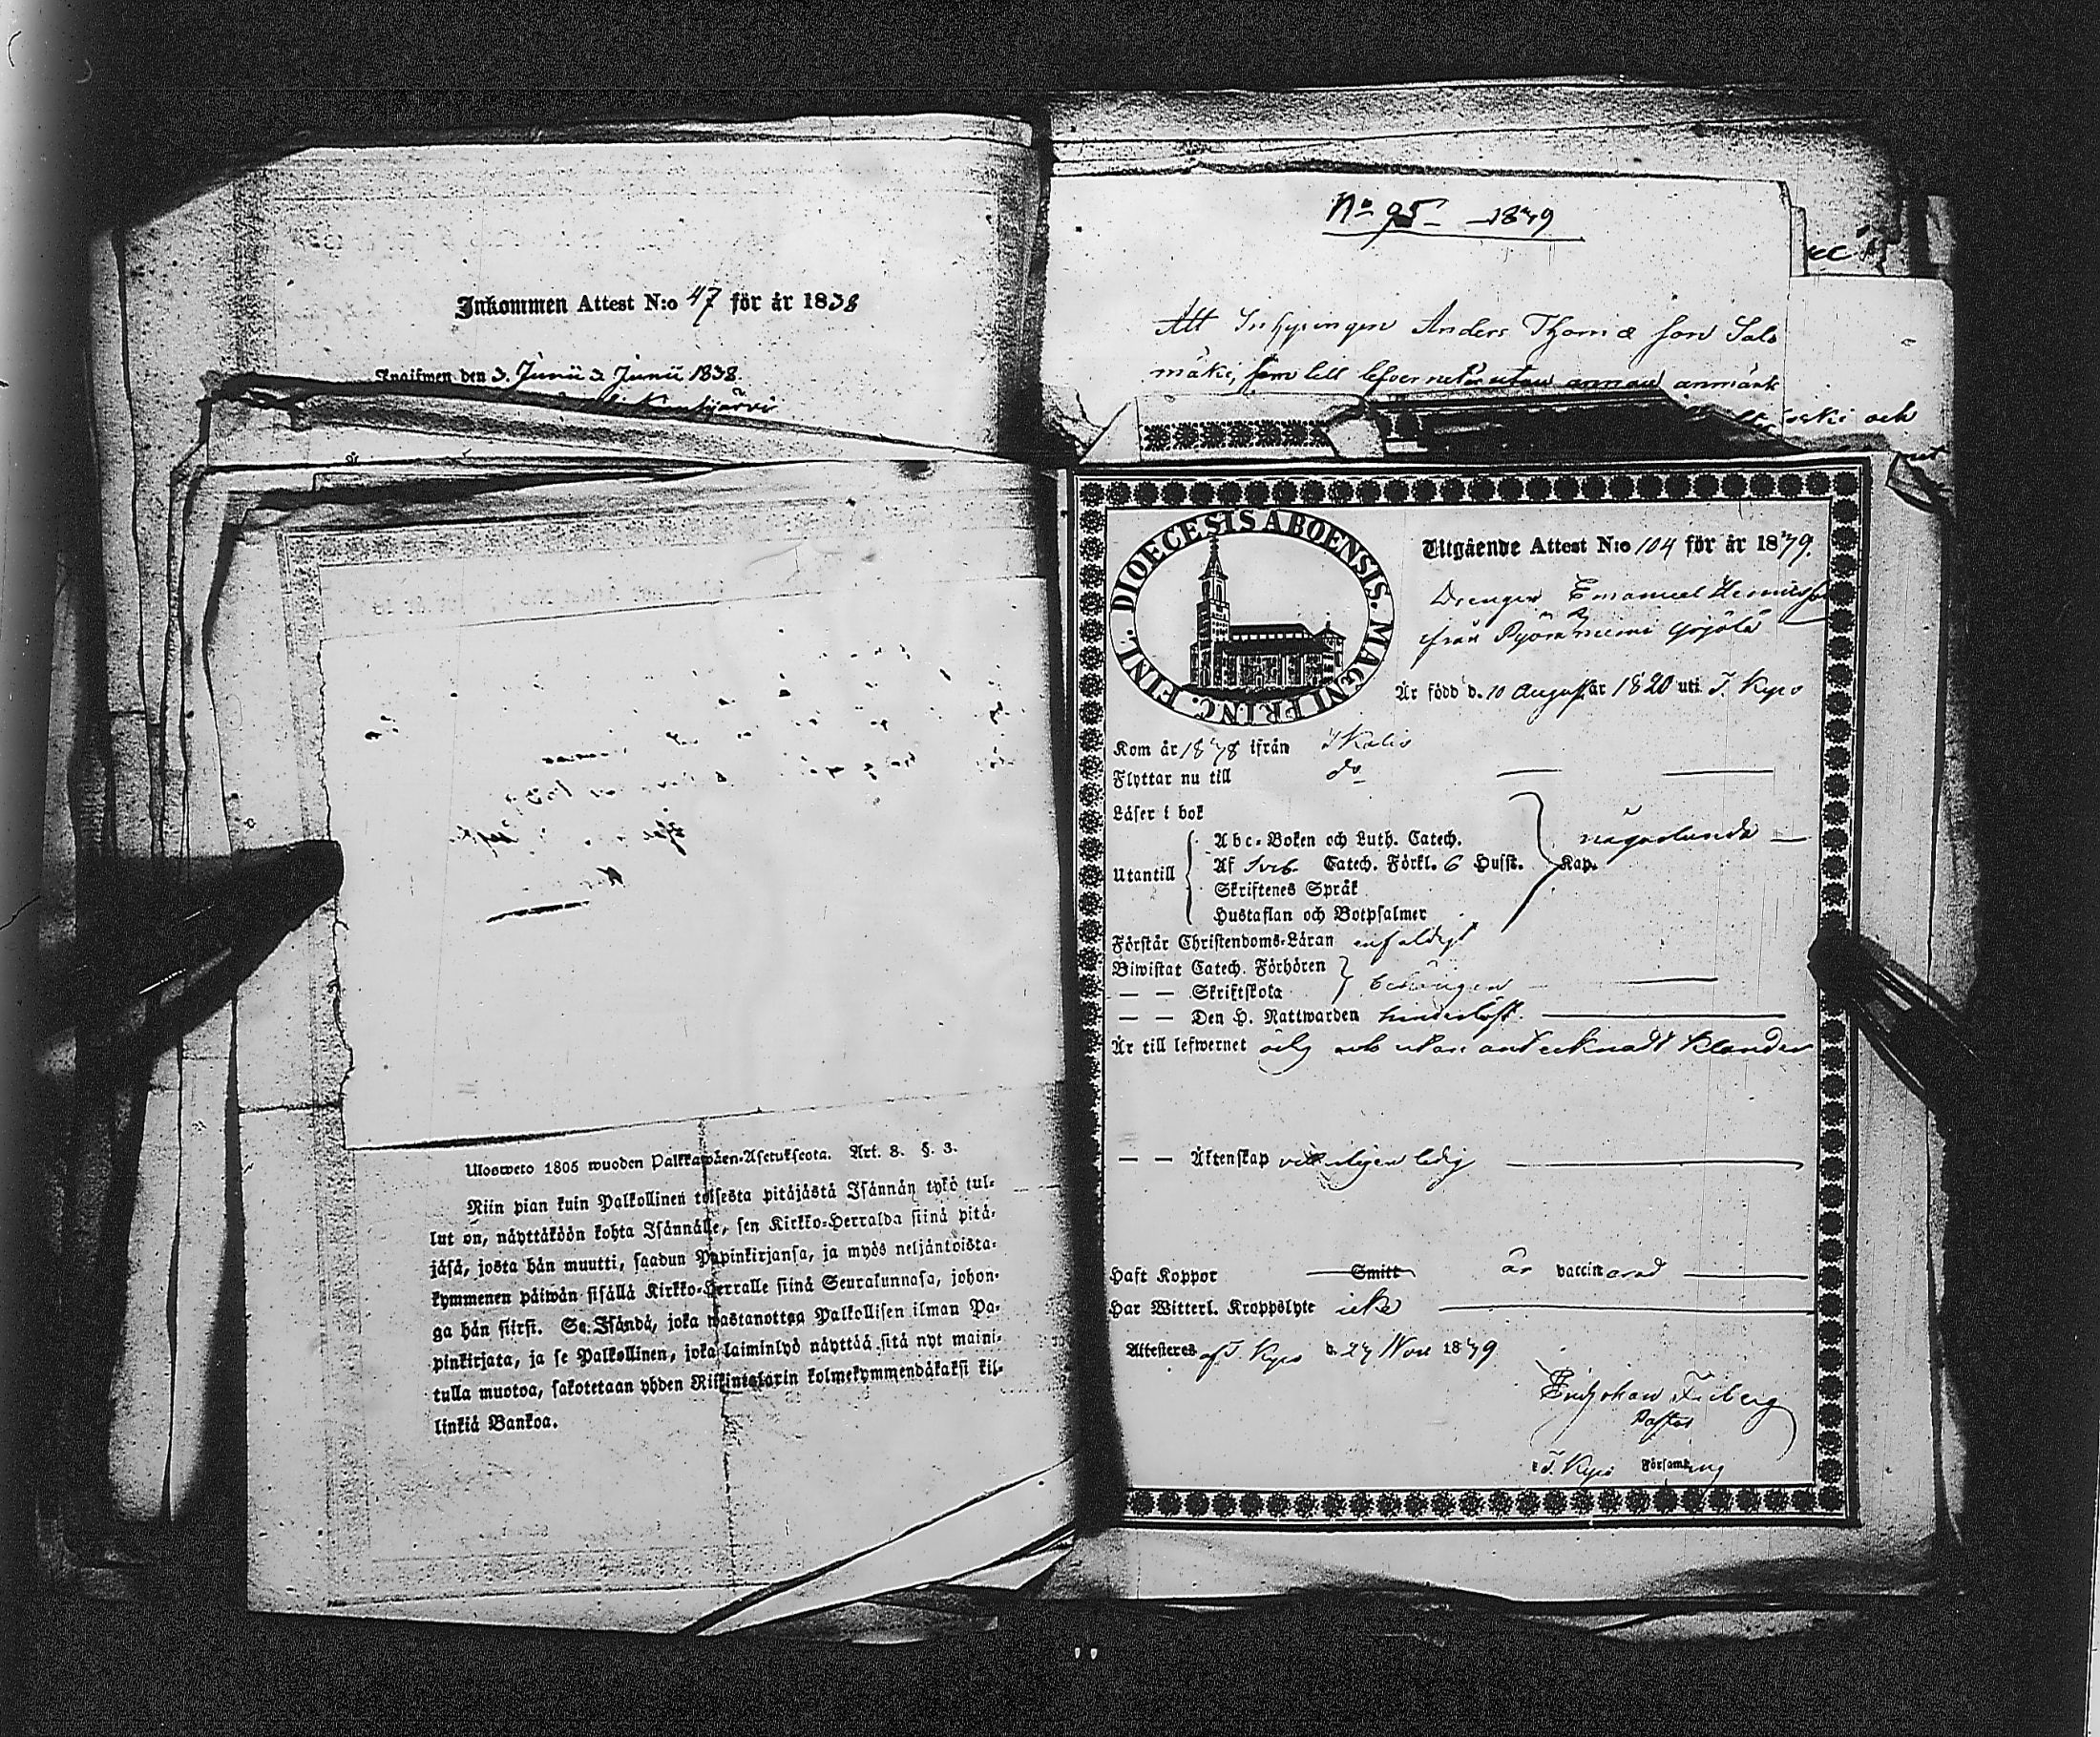 Inkommen Attest N:o 47 för år 1838
den 3. Junii 1838.
Ulosweto 1805 wuoden Palkkawäen-Asetuksesta. Art. 8. §. 3.
Niin pian kuin Palkollinen toisesta pitäjästä Isännän tykö tul-
lut on, näyttäköön kohta Isännälle, sen Kirkko-Herralda siinä pitä-
jäsä, josta hän muutti, saadun Papinkirjansa, ja myös neljäntoista-
kymmenen päiwän sisällä Kirkko-Herralle siinä Seurakunnasa, johon-
ga hän siirsi. Se Isändä, joka wastanottaa Palkollisen ilman Pa-
pinkirjata, ja se Palkollinen, joka laiminlyö näyttää sitä nyt maini-
tulla muotoa, sakotetaan yhden Riikintalarin kolmekymmendäkaksi kil-
linkiä Bankoa.
No 95 1849
Att Inhysingen Anders Thomæ son Salo
mäki, som till lefvernet är utan annan anmärk
och
DIOECESIS ABOENSIS. MAGNI PRINC. FINL.
Utgående Attest N:o 104 för år 1849.
Drengen Emanuel
från
Är född d. 10 August år 1820 uti T. Kyro
Kom år 1848 ifrån Ikalis
Flyttar nu till do
Läser i bok
Utantill
Abc-Boken och Luth. Catech.
Af Sveb. Catech. Förkl. 6 Husst. Kap.
någorlunda
Skriftenes Språk
Hustaflan och Botpsalmer
Förstår Christendoms-Läran enfaldigt
Biwistat Catech. Förhören
— — Skriftskola
— — Den H. Nattwarden hinderlöst
Är till lefwernet ärlig och utan antecknadt klander
— — Äktenskap ledig
Haft Koppor Smitt är vaccinerad
Har Witterl. Kroppslyte icke
Attesteras af T. Kyro d. 24 Nov 1849
Johan
Pastor
i T. Kyro Församling